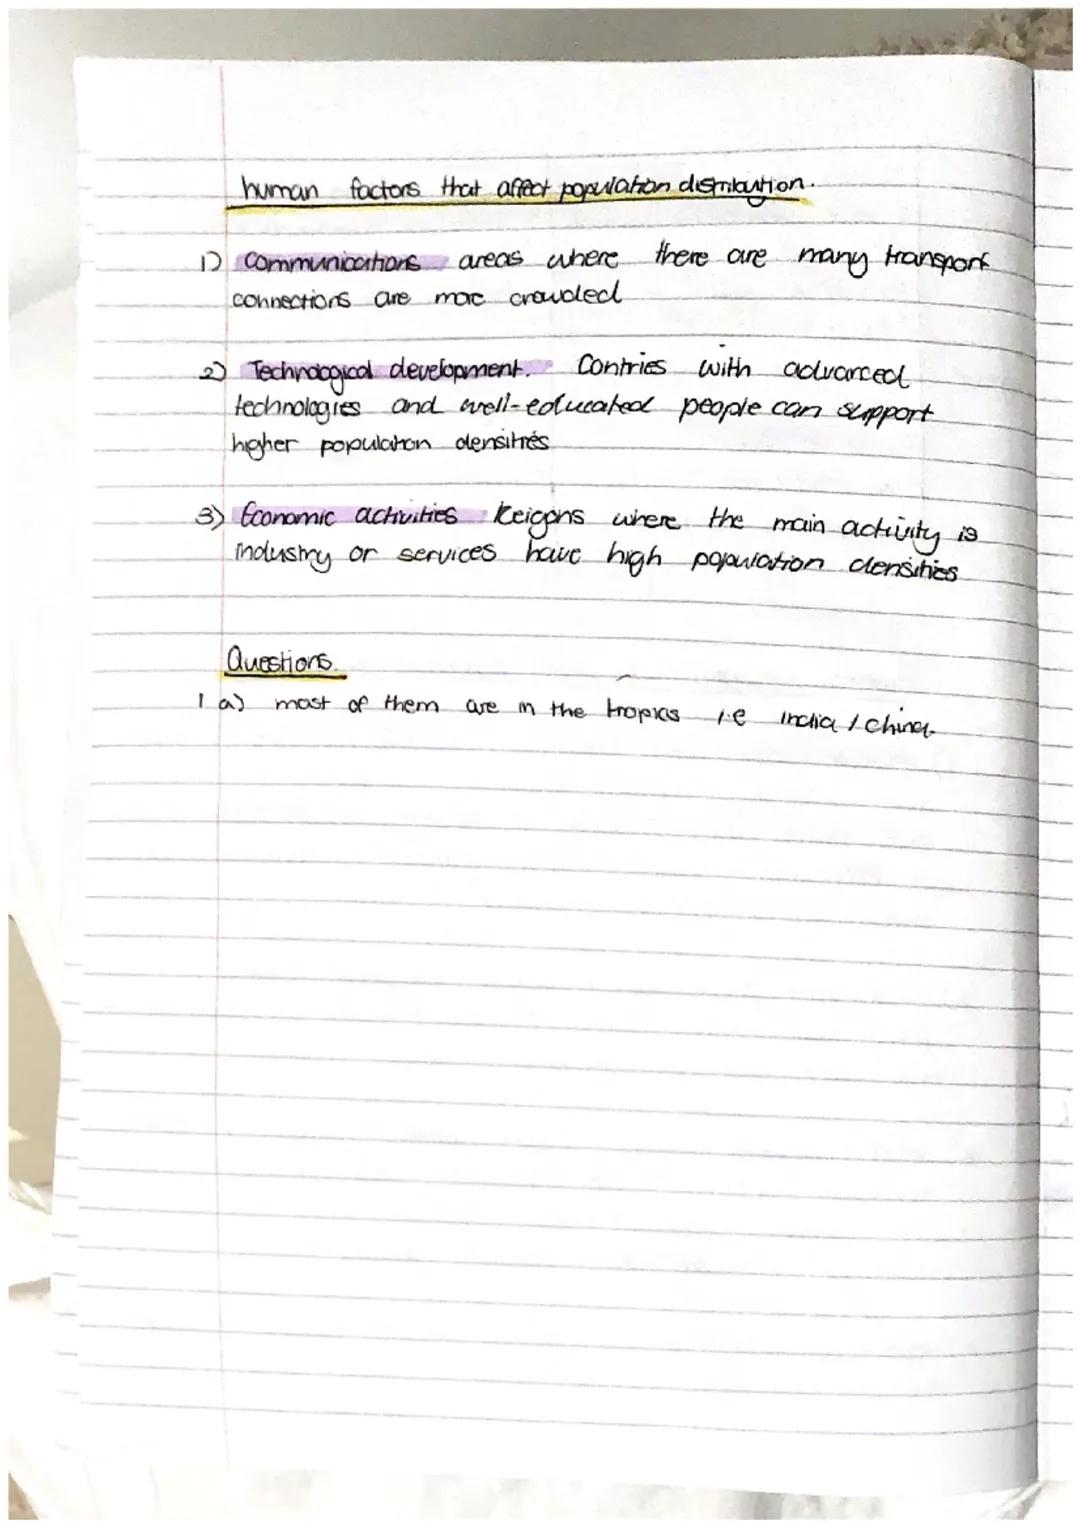 human factors that affect population distribution.
1) Communications areas where there are many transport
connections are more crowded
2) Technological development. Contries with advanced
technologies and well-educated people can support
higher population densities
3) Economic activities Reigons where the main activity is
industry or services have high population densities
Questions.
1 a) most of them are in the tropics i.e india / china.